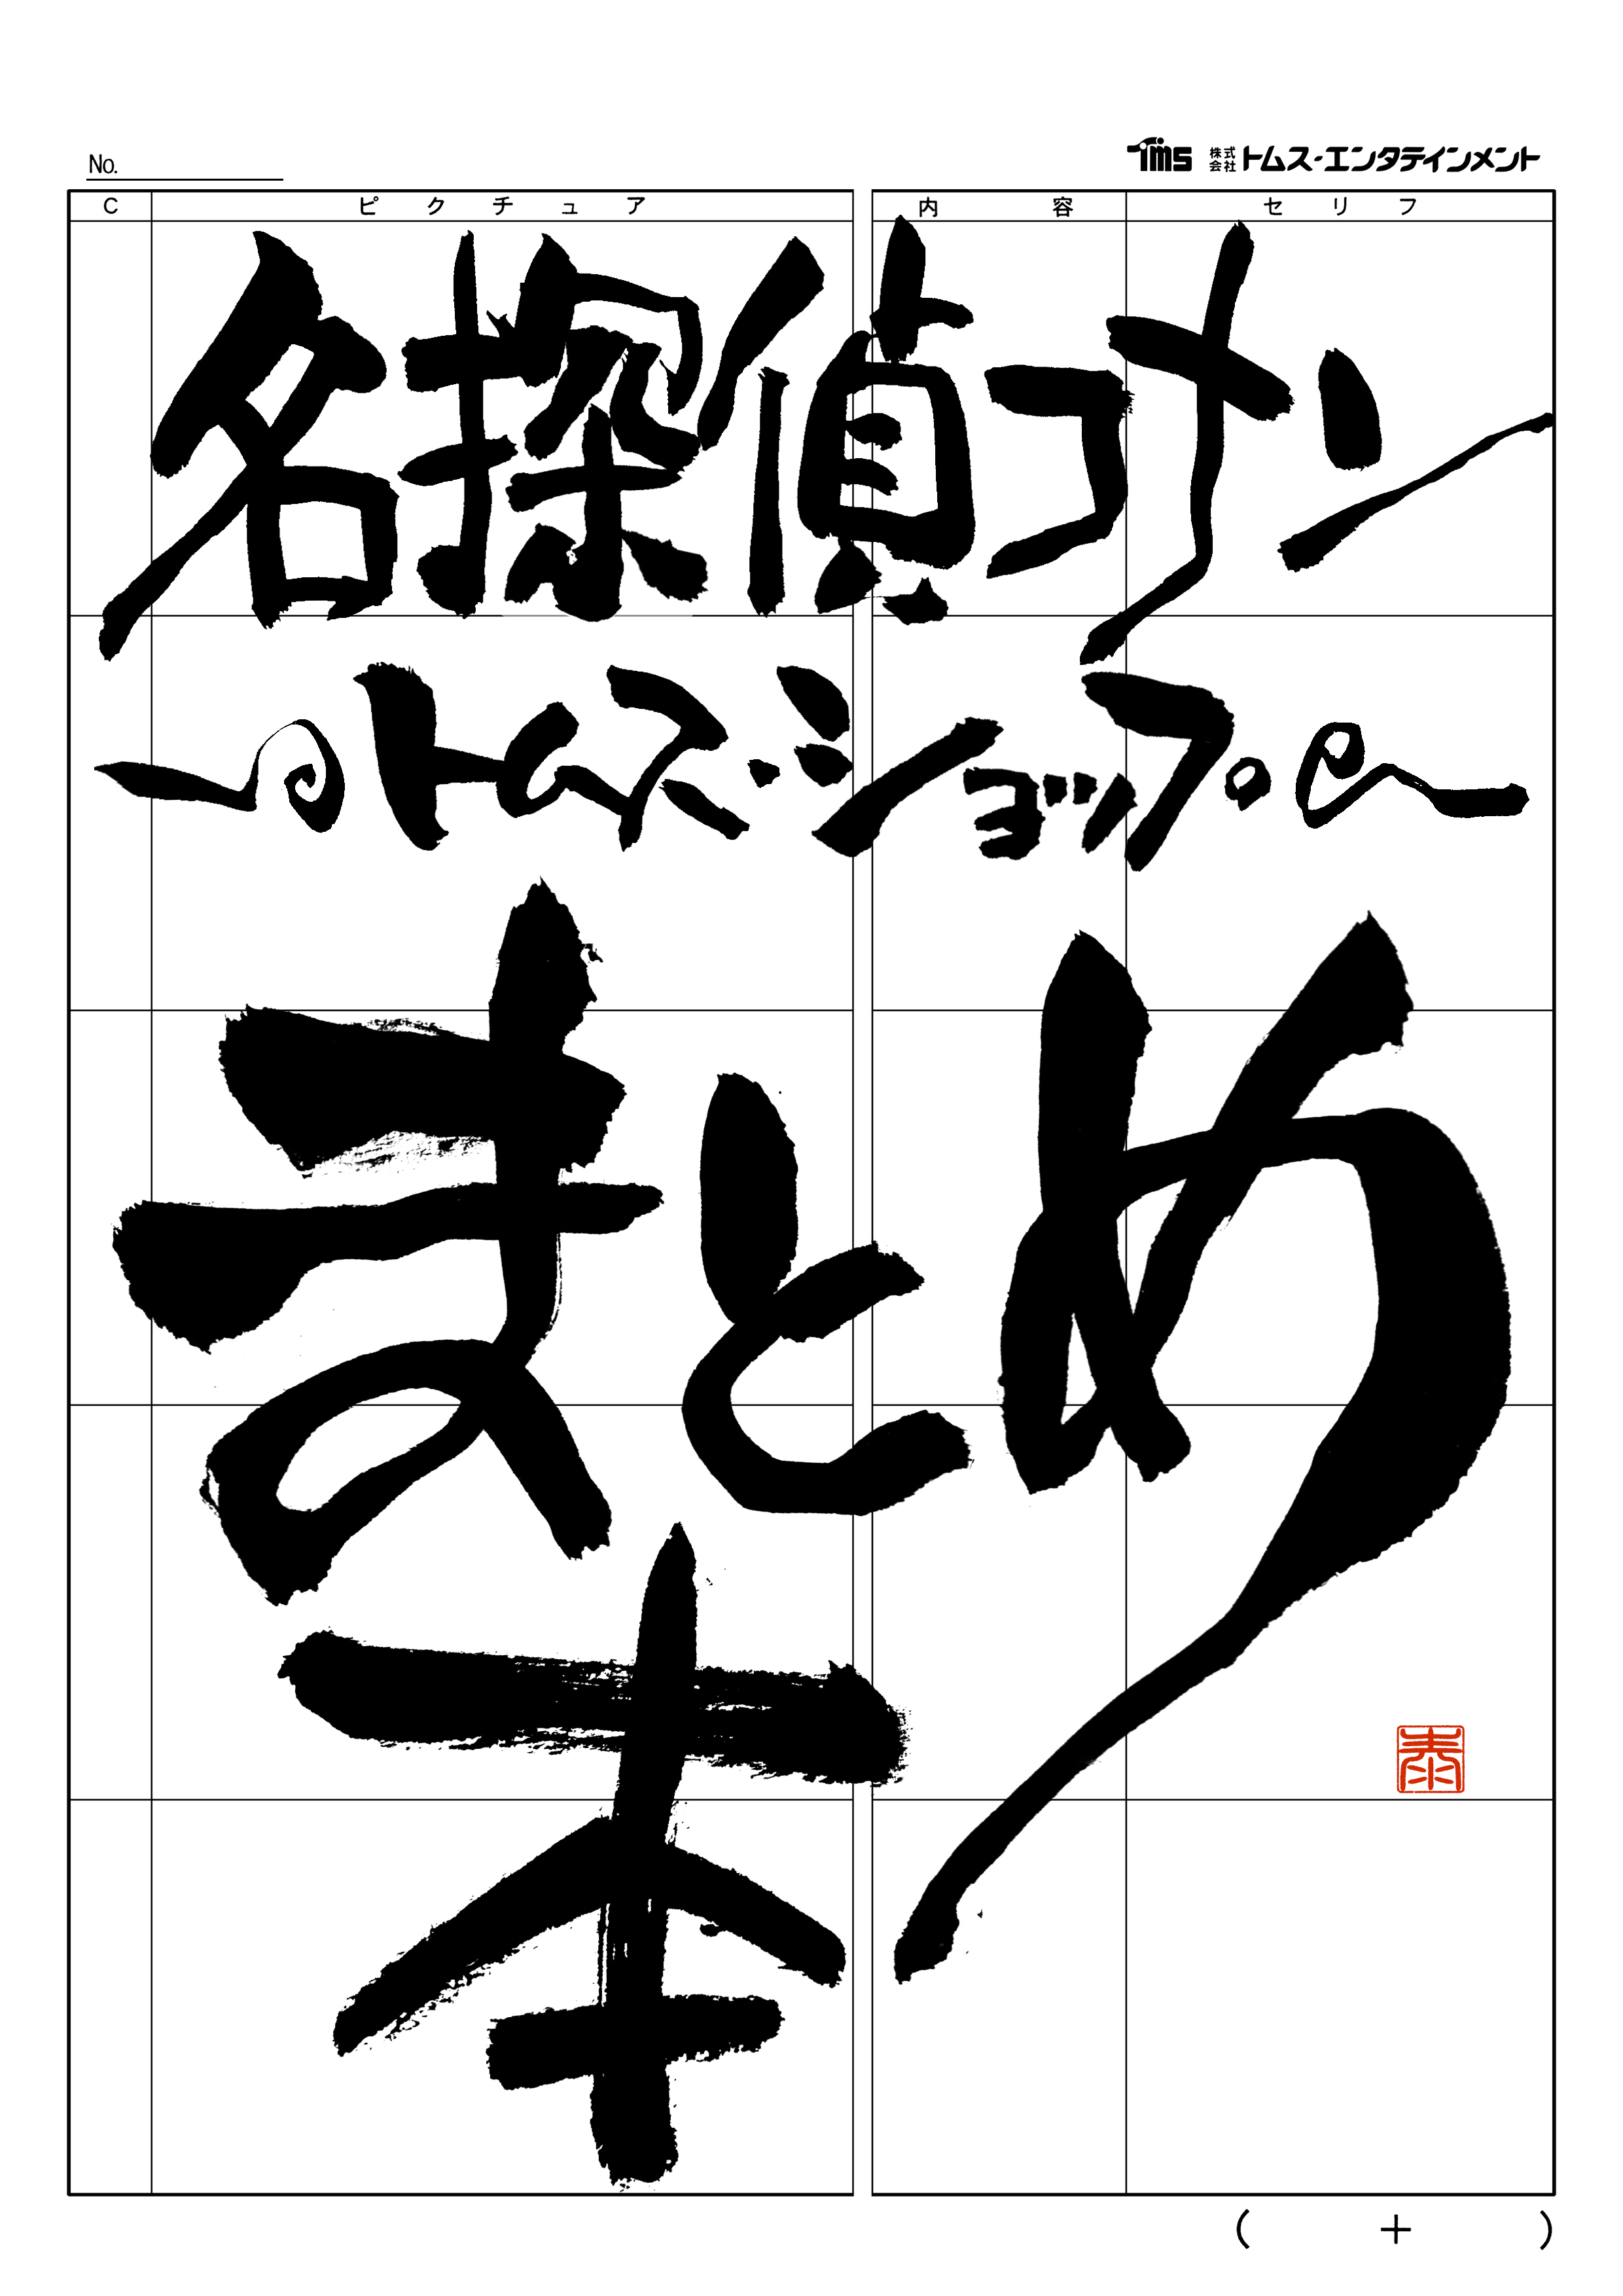 No.
TMS 株式会社 トムス・エンタテインメント
C ピクチュア 内容 セリフ
名探偵コナン
〜トムス・ショップ〜
まとめ
本
泰
( + )